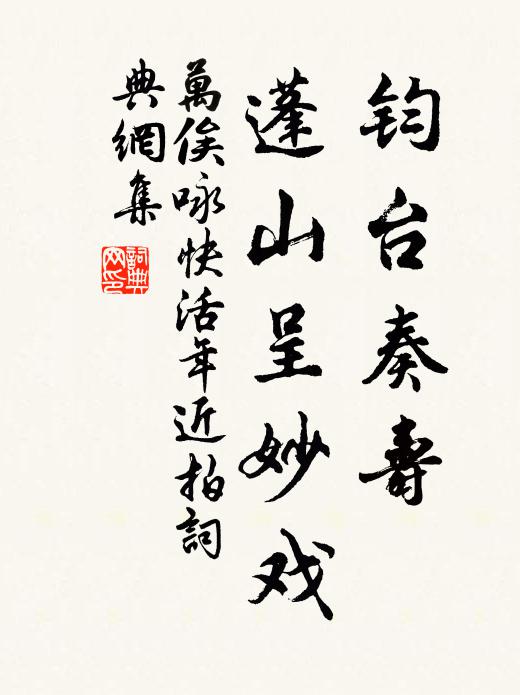 钧台奏壽
蓬山呈妙戏
萬俟咏快活年近拍詞
典網集
詞典
网印